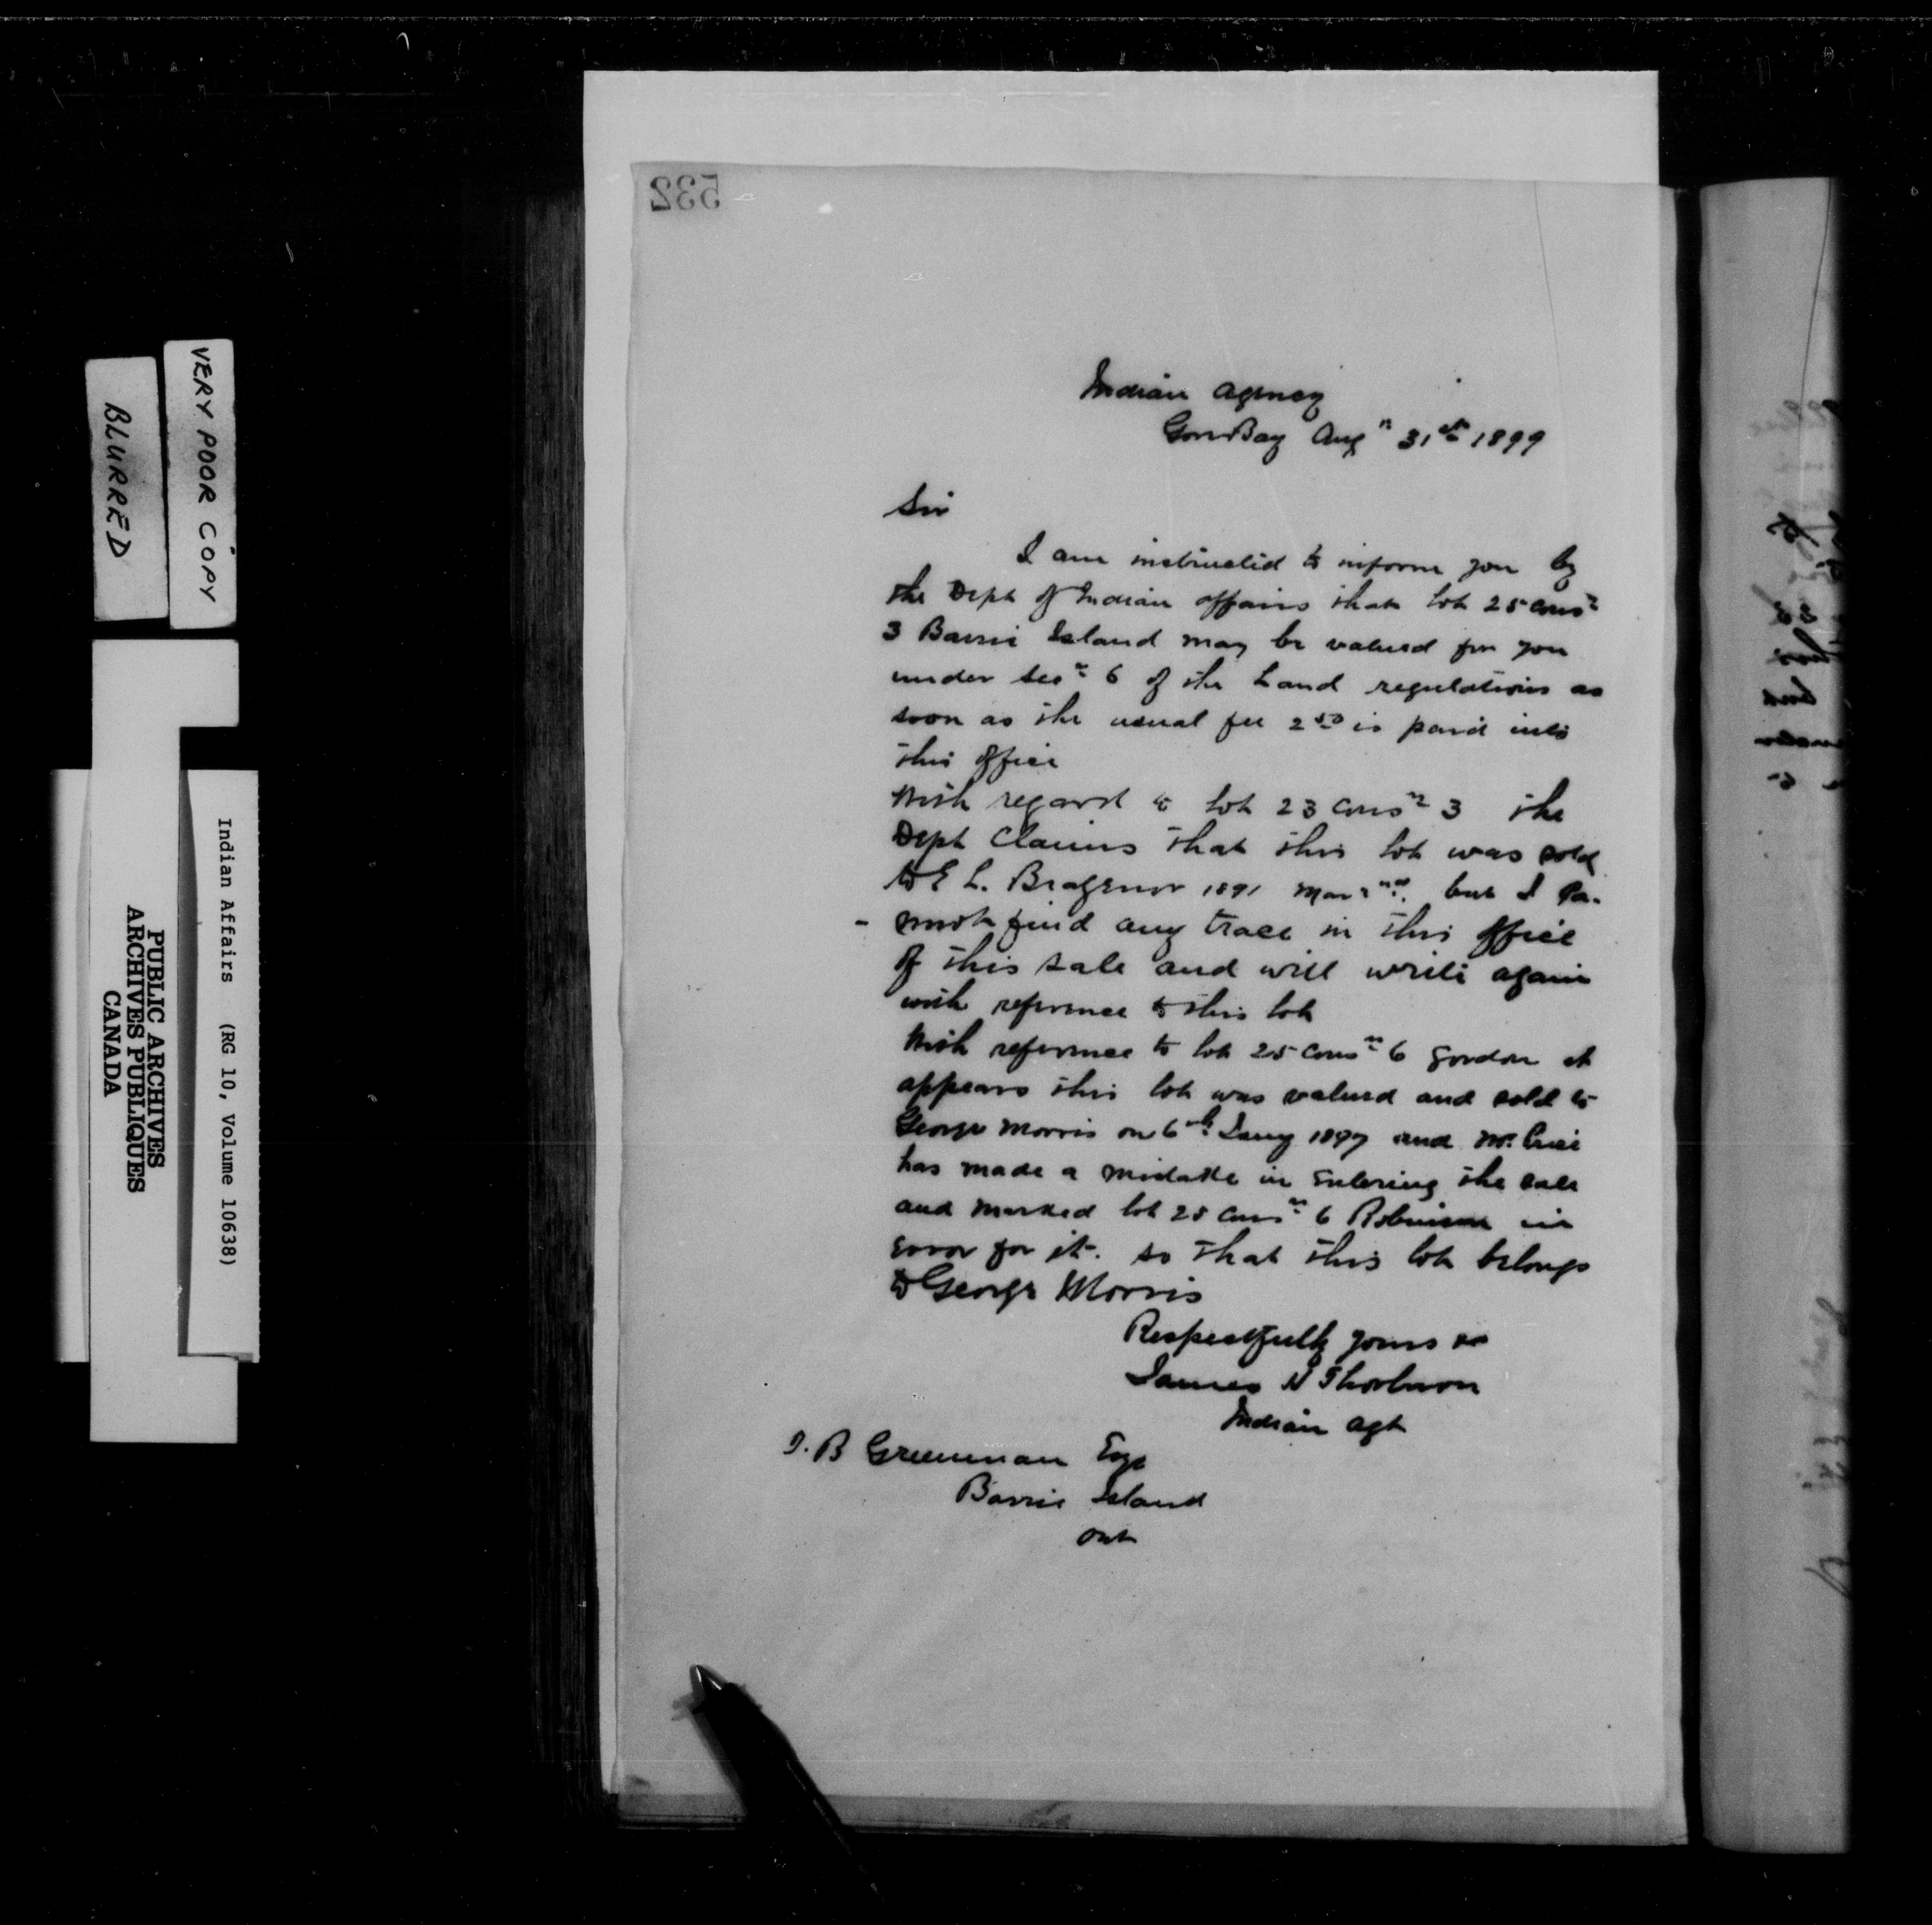 532
Indian Agency
Gore Bay Augt 31st 1899
Sir
I am instructed to inform you by
the Dept of Indian affairs that lot 25 Conn
3 Barrie Island may be valued for you
under Secn 6 of the Land regulations as
soon as the usual fee 2 50 is paid into
this office
With regard to lot 23 Conn 3 the
Dept Claims that this lot was sold
to E L. 1891 Mar 2nd. but I Ca-
- nnot find any trace in this office
of this sale and will write again
with reference to this lot
With reference to lot 25 Conn 6 Gordon it
appears this lot was valued and sold to
George Morris on 6th Jany 1897 and Mr.
has made a mistake in Entering the sale
and marked lot 25 Conn 6 Robinson in
Error for it. so that this lot belongs
to George Morris
Respectfully yours
James H Thorburn
Indian Agt
J. B Greenman Esqr
Barrie Island
Ont
VERY POOR COPY
BLURRED
Indian Affairs (RG 10, Volume 10638)
PUBLIC ARCHIVES
ARCHIVES PUBLIQUES
CANADA